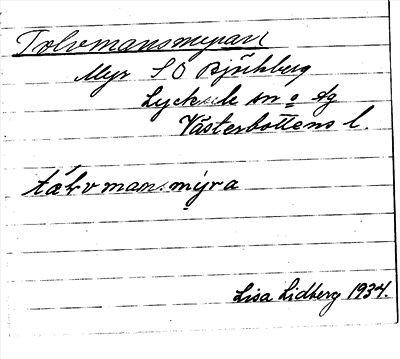 Tolvmansmyran
Myr S O Bjükberg
Lycksele sn o tg
Västerbottens l.
tålvmansmýra
Lisa Lidberg 1934.